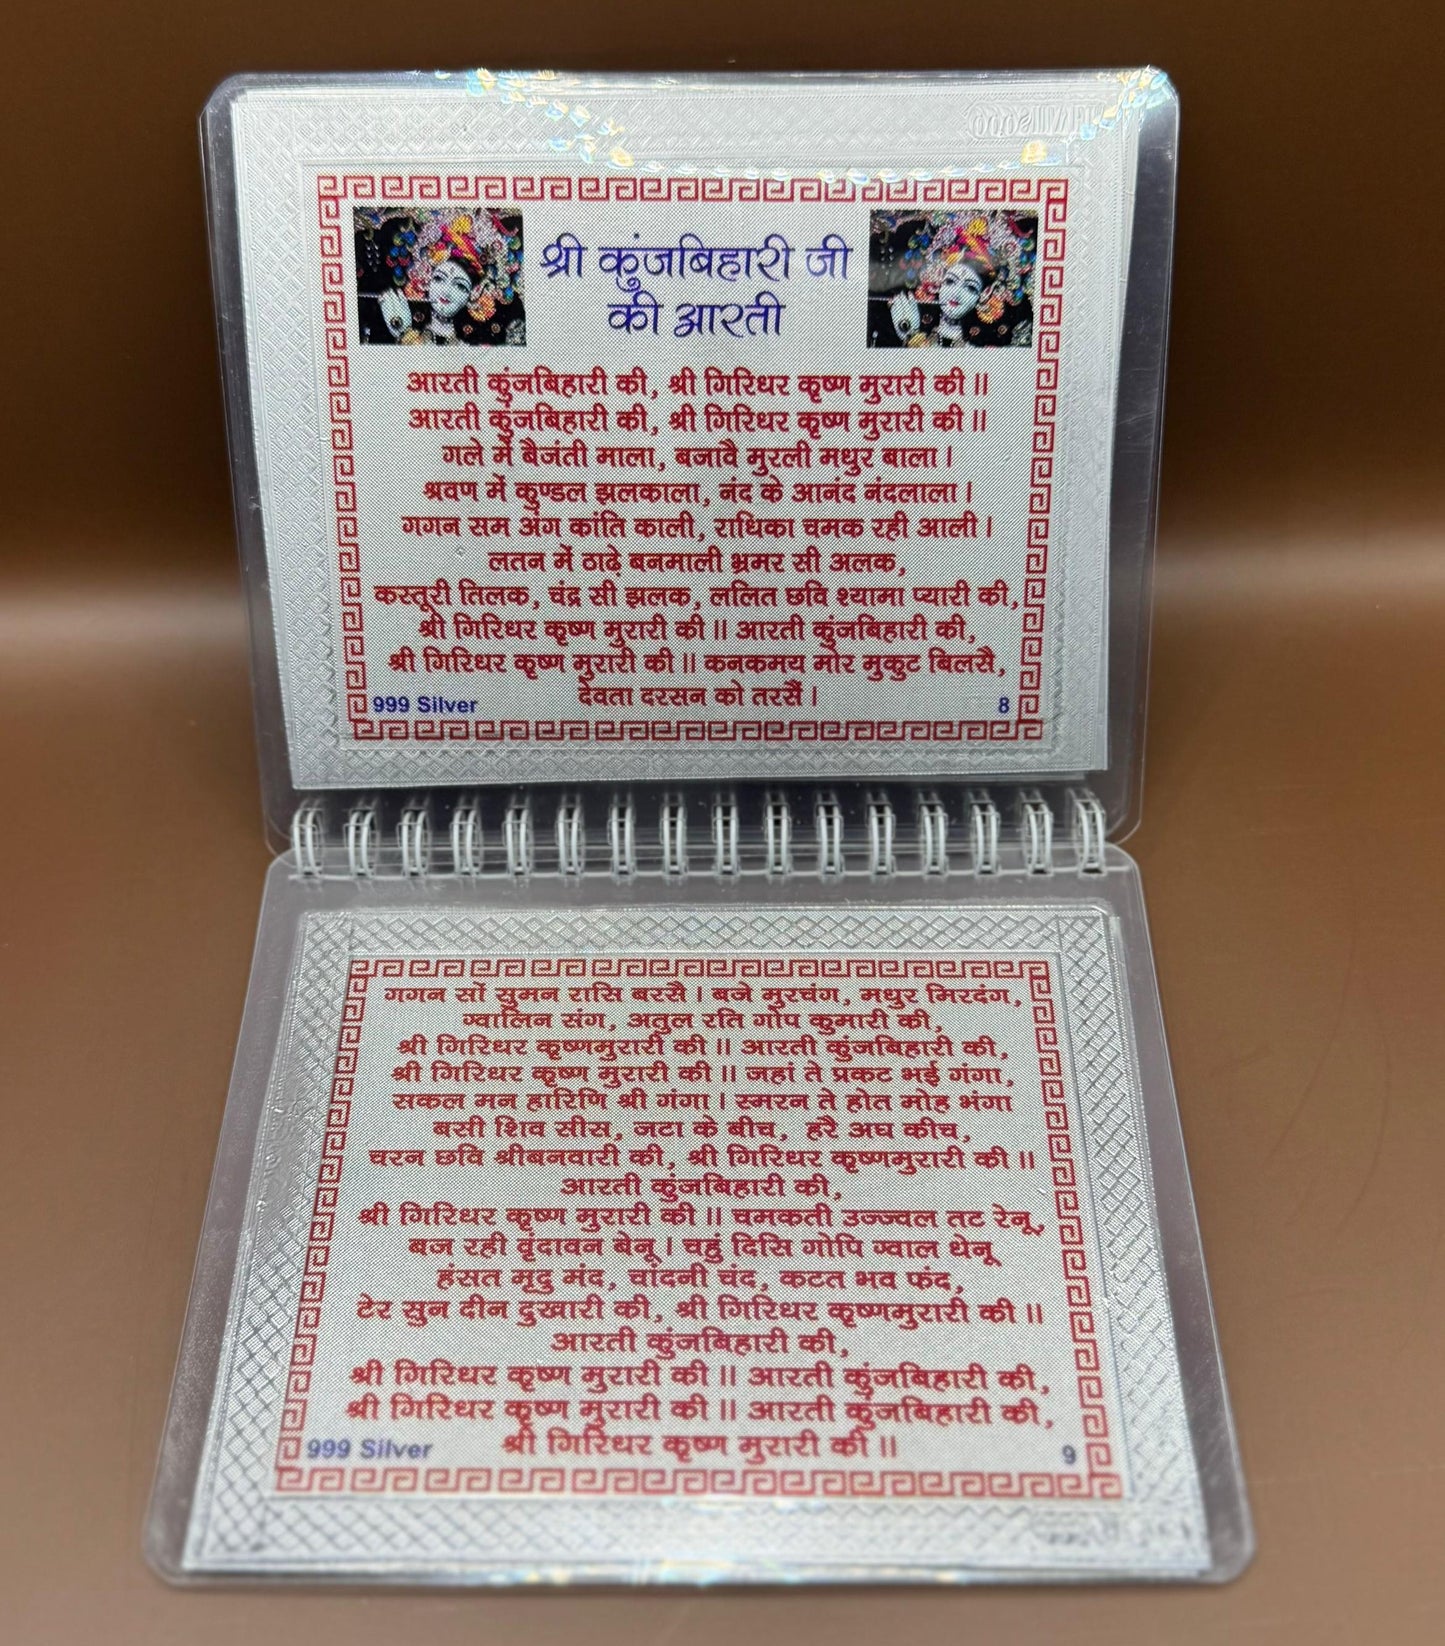 श्री कुंजबिहारी जी
की आरती
आरती कुंजबिहारी की, श्री गिरिधर कृष्ण मुरारी की ॥
आरती कुंजबिहारी की, श्री गिरिधर कृष्ण मुरारी की ॥
गले में बैजंती माला, बजावै मुरली मधुर बाला ।
श्रवण में कुण्डल झलकाला, नंद के आनंद नंदलाला ।
गगन सम अंग कांति काली, राधिका चमक रही आली ।
लतन में ठाढ़े बनमाली भ्रमर सी अलक,
कस्तूरी तिलक, चंद्र सी झलक, ललित छवि श्यामा प्यारी की,
श्री गिरिधर कृष्ण मुरारी की ॥ आरती कुंजबिहारी की,
श्री गिरिधर कृष्ण मुरारी की ॥ कनकमय मोर मुकुट बिलसै,
देवता दरसन को तरसैं ।
999 Silver 8
गगन सों सुमन रासि बरसै । बजे मुरचंग, मधुर मिरदंग,
ग्वालिन संग, अतुल रति गोप कुमारी की,
श्री गिरिधर कृष्णमुरारी की ॥ आरती कुंजबिहारी की,
श्री गिरिधर कृष्ण मुरारी की ॥ जहां ते प्रकट भई गंगा,
सकल मन हारिणि श्री गंगा । स्मरन ते होत मोह भंगा
बसी शिव सीस, जटा के बीच, हरै अघ कीच,
चरन छवि श्रीबनवारी की, श्री गिरिधर कृष्णमुरारी की ॥
आरती कुंजबिहारी की,
श्री गिरिधर कृष्ण मुरारी की ॥ चमकती उज्ज्वल तट रेनू,
बज रही वृंदावन बेनू । चहुं दिसि गोपि ग्वाल धेनू
हंसत मृदु मंद, चांदनी चंद, कटत भव फंद,
टेर सुन दीन दुखारी की, श्री गिरिधर कृष्णमुरारी की ॥
आरती कुंजबिहारी की,
श्री गिरिधर कृष्ण मुरारी की ॥ आरती कुंजबिहारी की,
श्री गिरिधर कृष्ण मुरारी की ॥ आरती कुंजबिहारी की,
श्री गिरिधर कृष्ण मुरारी की ॥
999 Silver 9